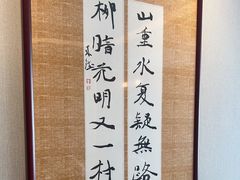 山重水复疑無路
柳暗花明又一村